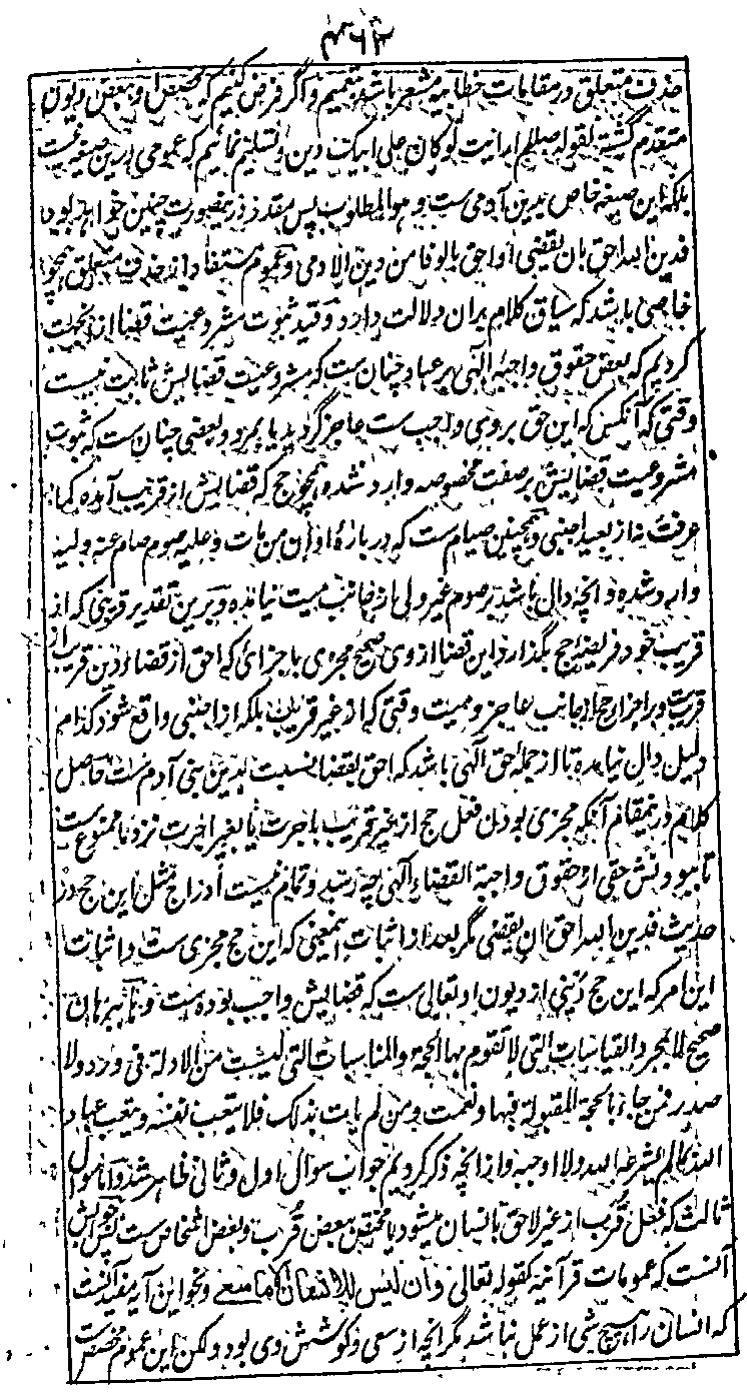 ۴۶۳
حذف متعلق در مقامات خطابیه مشعر باشد بتعمیم و اگر فرض کنیم که بعض او بعض دیون
متقدم گشته لقوله صللم ارایت لو کان علی ابیک دین و تسلیم نمائیم که عمومی درین صیغه نیست
بلکه این صیغه خاص بدین آدمی ست و هو المطلوب پس مقدر درینصورت چنین خواهد بود
فدین الله احق بان یقضی او احق بالوفا من دین الادمی و عموم مستفاد از حذف متعلق همچو
خاصی باشد که سیاق کلام بران دلالت دارد و قید ثبوت مشروعیت قضا از انجهت
کردیم که بعض حقوق واجبه الهی بر عباد چنان ست که مشروعیت قضایش ثابت نیست
وقتی که آنکس که این حق بر وی واجب ست عاجز گردید یا بمرد و بعضی چنان ست که ثبوت
مشروعیت قضایش بر صفت مخصوصه وارد شده همچو حج که قضایش از قریب آمده کما
عرفت نه از بعید اجنبی و همچنین صیام ست که در بارهٔ او ان من مات و علیه صوم صام عنه ولیه
وارد شده و انچه دال باشد بر صوم غیر ولی از جانب میت نیامده و برین تقدیر قریبی که از
قریب خود فریضهٔ حج بگذارد این قضا از وی صحیح مجزی باجزائی که احق از قضاء دین قریب از
قریب ست و بر اجزاء حج از جانب عاجز و میت وقتی که از غیر قریب بلکه از اجنبی واقع شود کدام
دلیل دال نیامده تا از جمله حق الهی باشد که احق بقضا بنسبت بدین بنی آدم ست حاصل
کلام درینمقام آنکه مجزی بودن فعل حج از غیر قریب باجرت یا بغیر اجرت نزد ما ممنوع ست
تا بودنش حقی از حقوق واجبة القضاء الهی چه رسد و تمام نیست ادراج مثل این حج در
حدیث فدین الله احق ان یقضی مگر بعد از اثبات اینمعنی که این حج مجزی ست و اثبات
این امر که این حج دینی از دیون او تعالی ست که قضایش واجب بوده ست و ببرهان
صحیح لا بمجرد القیاسات التی لا تقوم بها الحجة و المناسبات التی لیست من الادلة فی ورد و لا
صدر فمن جاء بالحجة المقبولة فبها و نعمت و من لم یات بذلک فلا یتعب نفسه و یتعب عباد
الله بما لم یشرعه الله و لا اوجبه و از انچه ذکر کردیم جواب سوال اول و ثانی ظاهر شد و اما سوال
ثالث که فعل قرب از غیر لاحق بانسان میشود یا مختص ببعض قرب و بعض اشخاص ست پس جوابش
آنست که عمومات قرآنیه کقوله تعالی و ان لیس للانسان الا ما سعی و نحو این آیه مفید آنست
که انسان را هیچ شی از عمل نباشد مگر انچه از سعی و کوشش وی بود و لکن این عموم مخصص ست